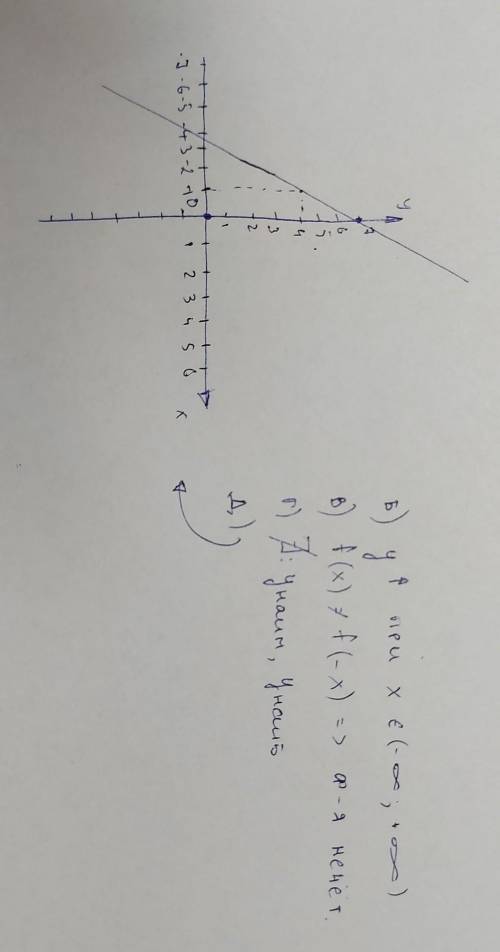 y
7
6
5
4
3
2
1
-7 -6 -5 -4 -3 -2 -1 0 1 2 3 4 5 6 x
Б) y ↑ при x ∈ (-∞; +∞)
В) f(x) ≠ f(-x) => ф-я нечёт.
Г) ∄: y наим, y наиб
Д)